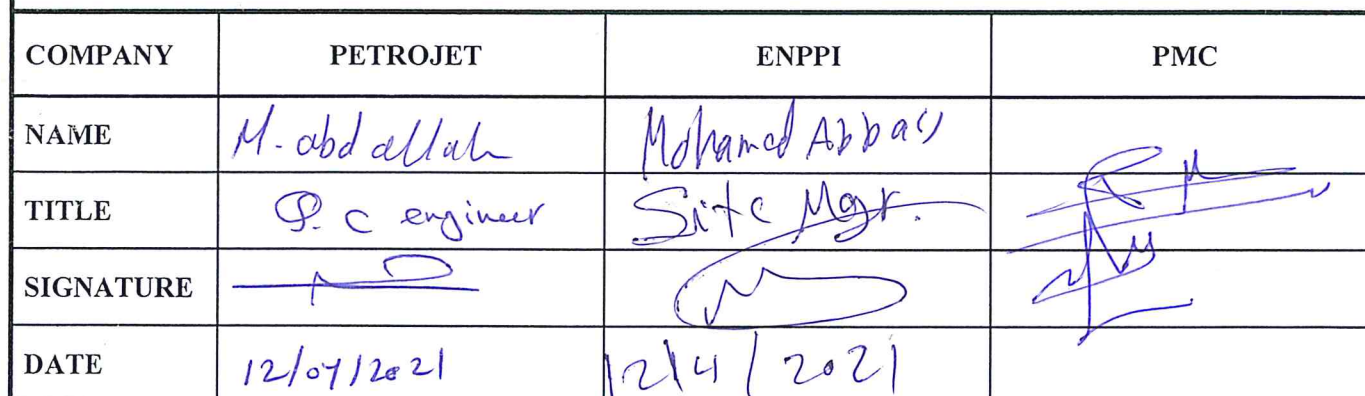 COMPANY PETROJET ENPPI PMC
NAME M. abdallah Mohamed Abbas
TITLE P. c engineer Site Mgr.
SIGNATURE
DATE 12/04/2021 12/4/2021